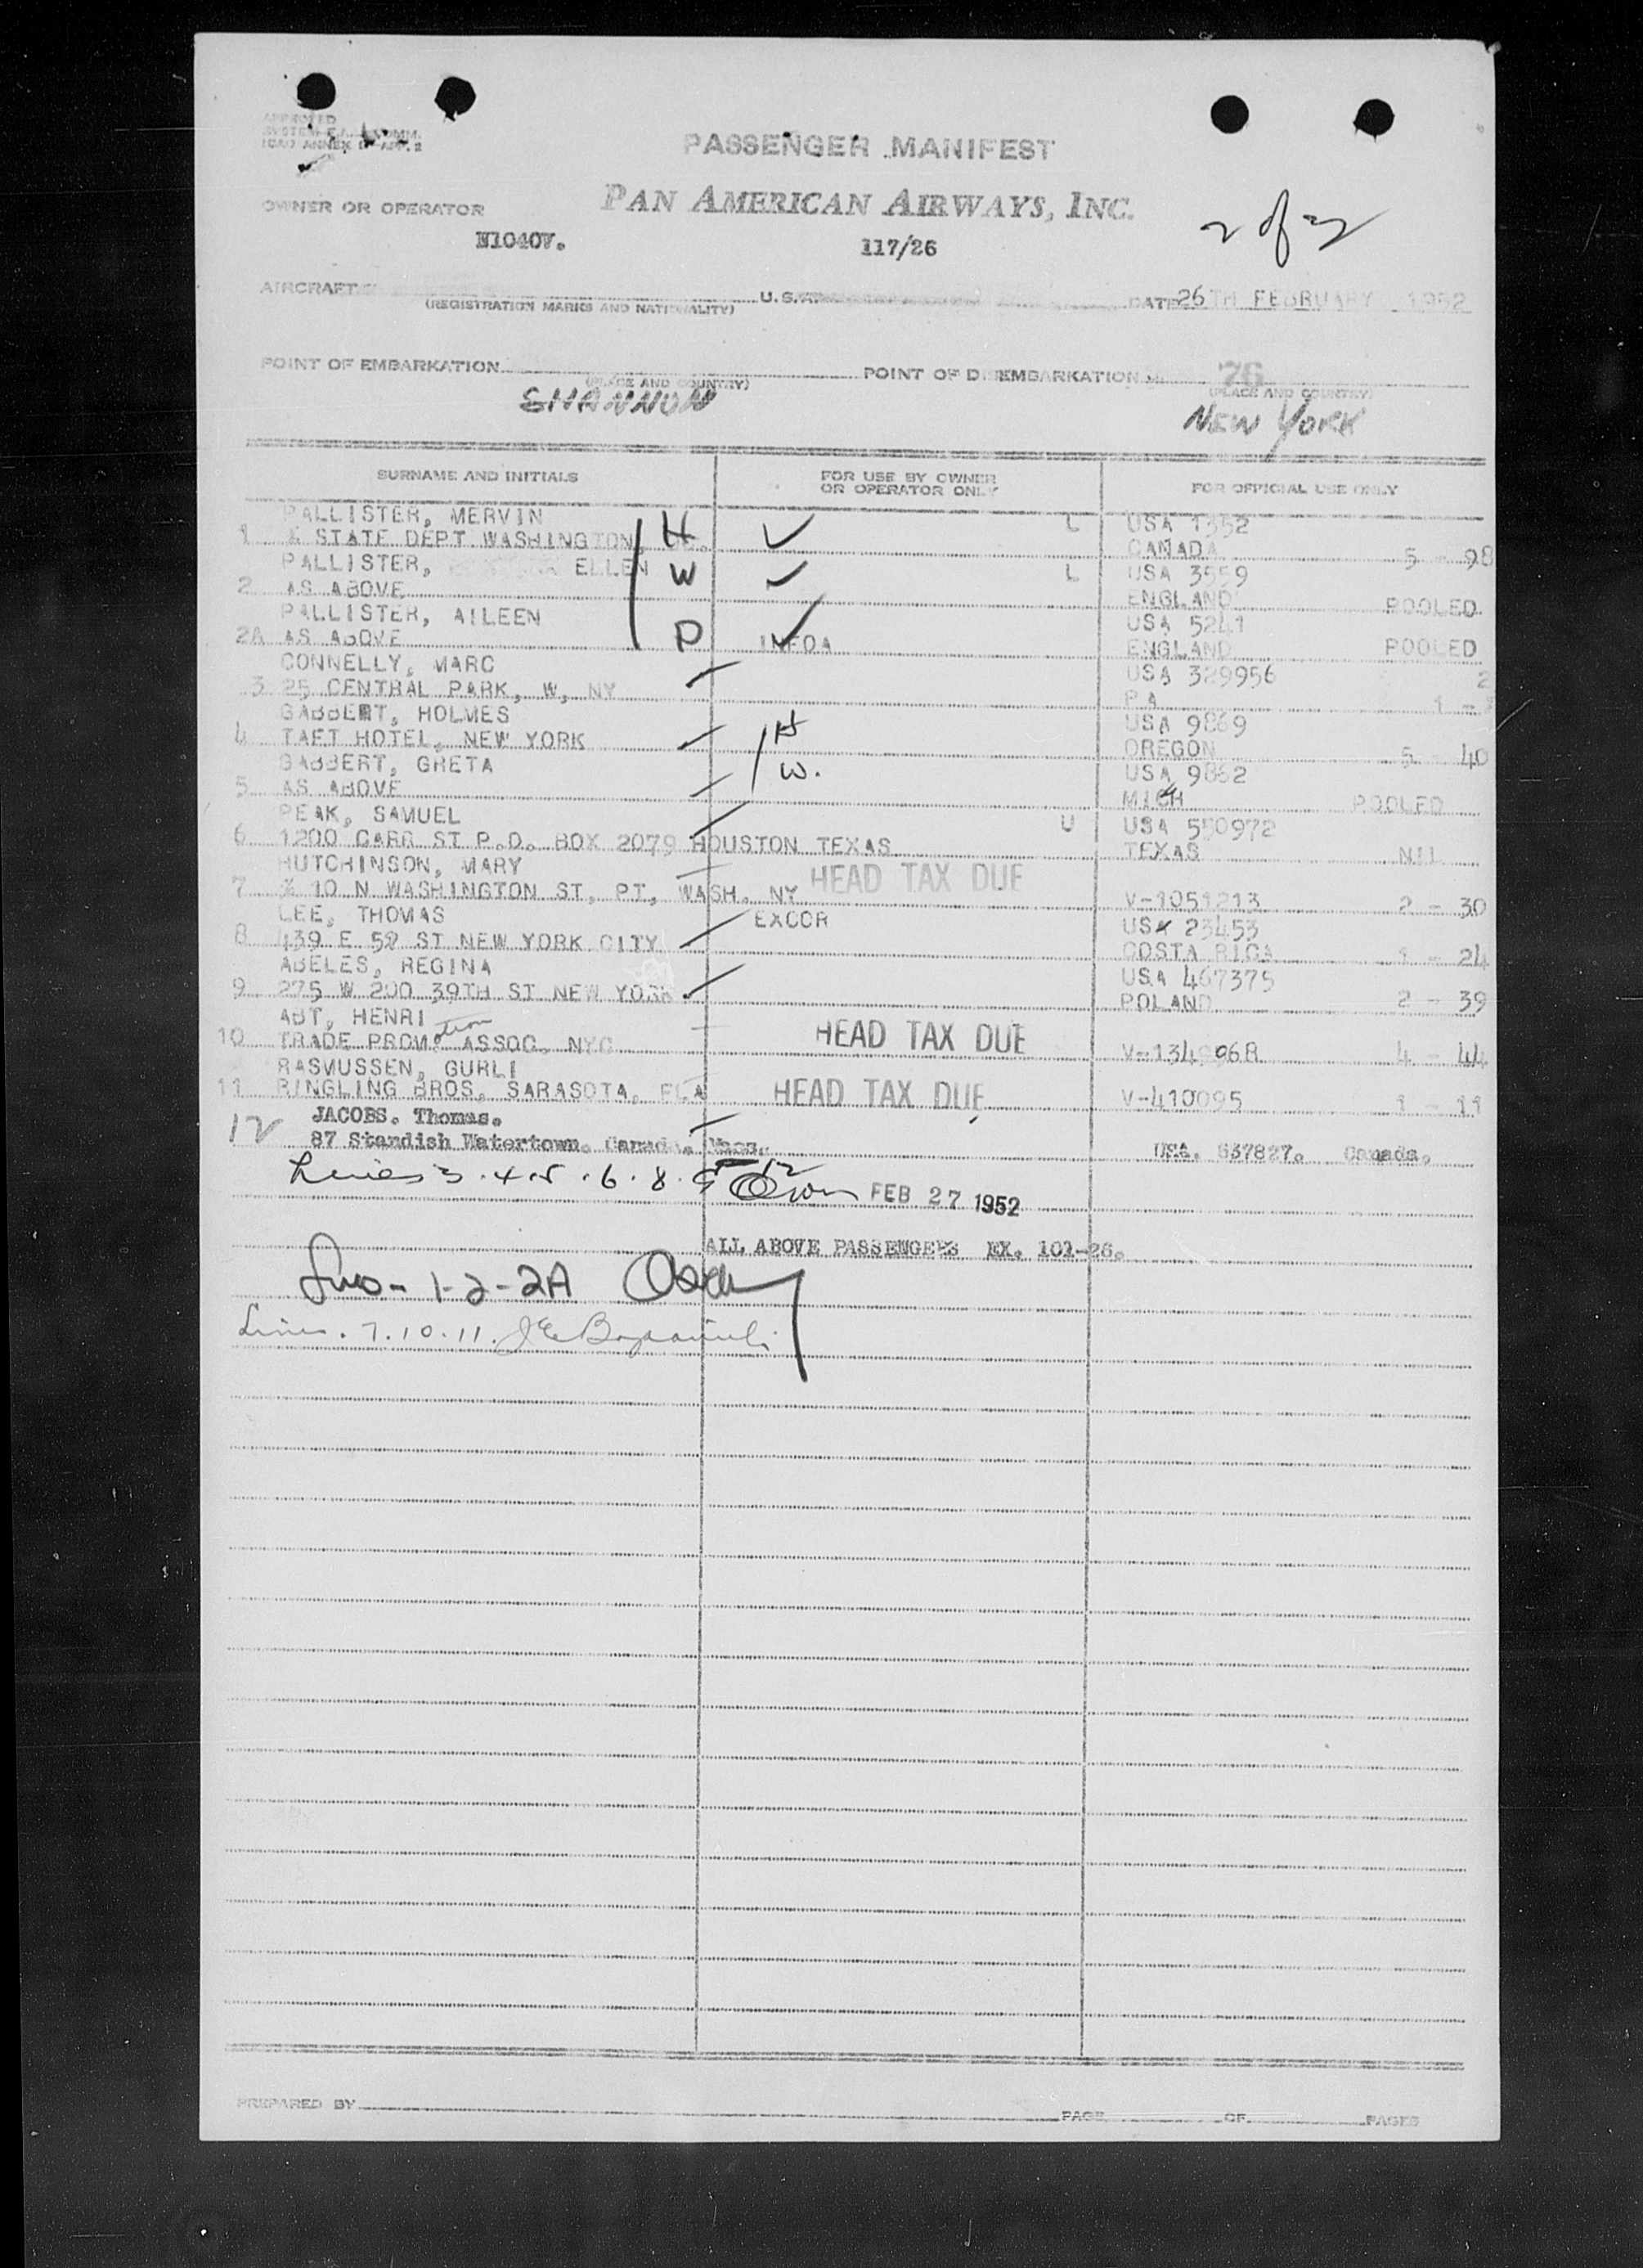 APPROVED
SYSTEM F.A.L. COMM.
ICAO ANNEX 9-APP. 2
PASSENGER MANIFEST
PAN AMERICAN AIRWAYS, INC.
OWNER OR OPERATOR
N1040V.
117/26
2 of 2
AIRCRAFT
(REGISTRATION MARKS AND NATIONALITY)
U.S.A.
DATE 26TH FEBRUARY 1952
POINT OF EMBARKATION
(PLACE AND COUNTRY)
SHANNON
POINT OF DISEMBARKATION
76
(PLACE AND COUNTRY)
NEW YORK
SURNAME AND INITIALS
FOR USE BY OWNER
OR OPERATOR ONLY
FOR OFFICIAL USE ONLY
PALLISTER, MERVIN H L USA 1352
1 % STATE DEPT WASHINGTON, DC. CANADA 5 - 98
PALLISTER, ELLEN W L USA 3559
2 AS ABOVE ENGLAND POOLED
PALLISTER, AILEEN USA 5241
2A AS ABOVE D INFOA ENGLAND POOLED
CONNELLY, MARC USA 329956 2
3 25 CENTRAL PARK, W, NY PA 1 -
GABBERT, HOLMES H USA 9869
4 TAFT HOTEL, NEW YORK OREGON 5 40
GABBERT, GRETA W. USA 9862
5 AS ABOVE MICH POOLED
PEAK, SAMUEL U USA 550972
6 1200 CARR ST P.O. BOX 2079 HOUSTON TEXAS TEXAS NIL
HUTCHINSON, MARY HEAD TAX DUE
7 % 10 N WASHINGTON ST, PT, WASH. NY V-1051213 2 - 30
LEE, THOMAS EXCOR USA 23453
8 439 E 52 ST NEW YORK CITY COSTA RICA 1 - 24
ABELES, REGINA USA 467375
9 275 W 200 39TH ST NEW YORK POLAND 2 - 39
ABT, HENRI HEAD TAX DUE
10 TRADE PROMotion ASSOC, NYC V-134 968 4 - 44
RASMUSSEN, GURLI HEAD TAX DUE
11 RINGLING BROS, SARASOTA, FLA V-410095 1 - 11
JACOBS. Thomas.
12 87 Standish Watertown. Canada. Mass. USA. 637827. Canada.
Lines 3.4.5.6.8.9 12 FEB 27 1952
ALL ABOVE PASSENGERS EX. 101-26.
1-2-2A
Lines. 7.10.11.
PREPARED BY
PAGE OF PAGES